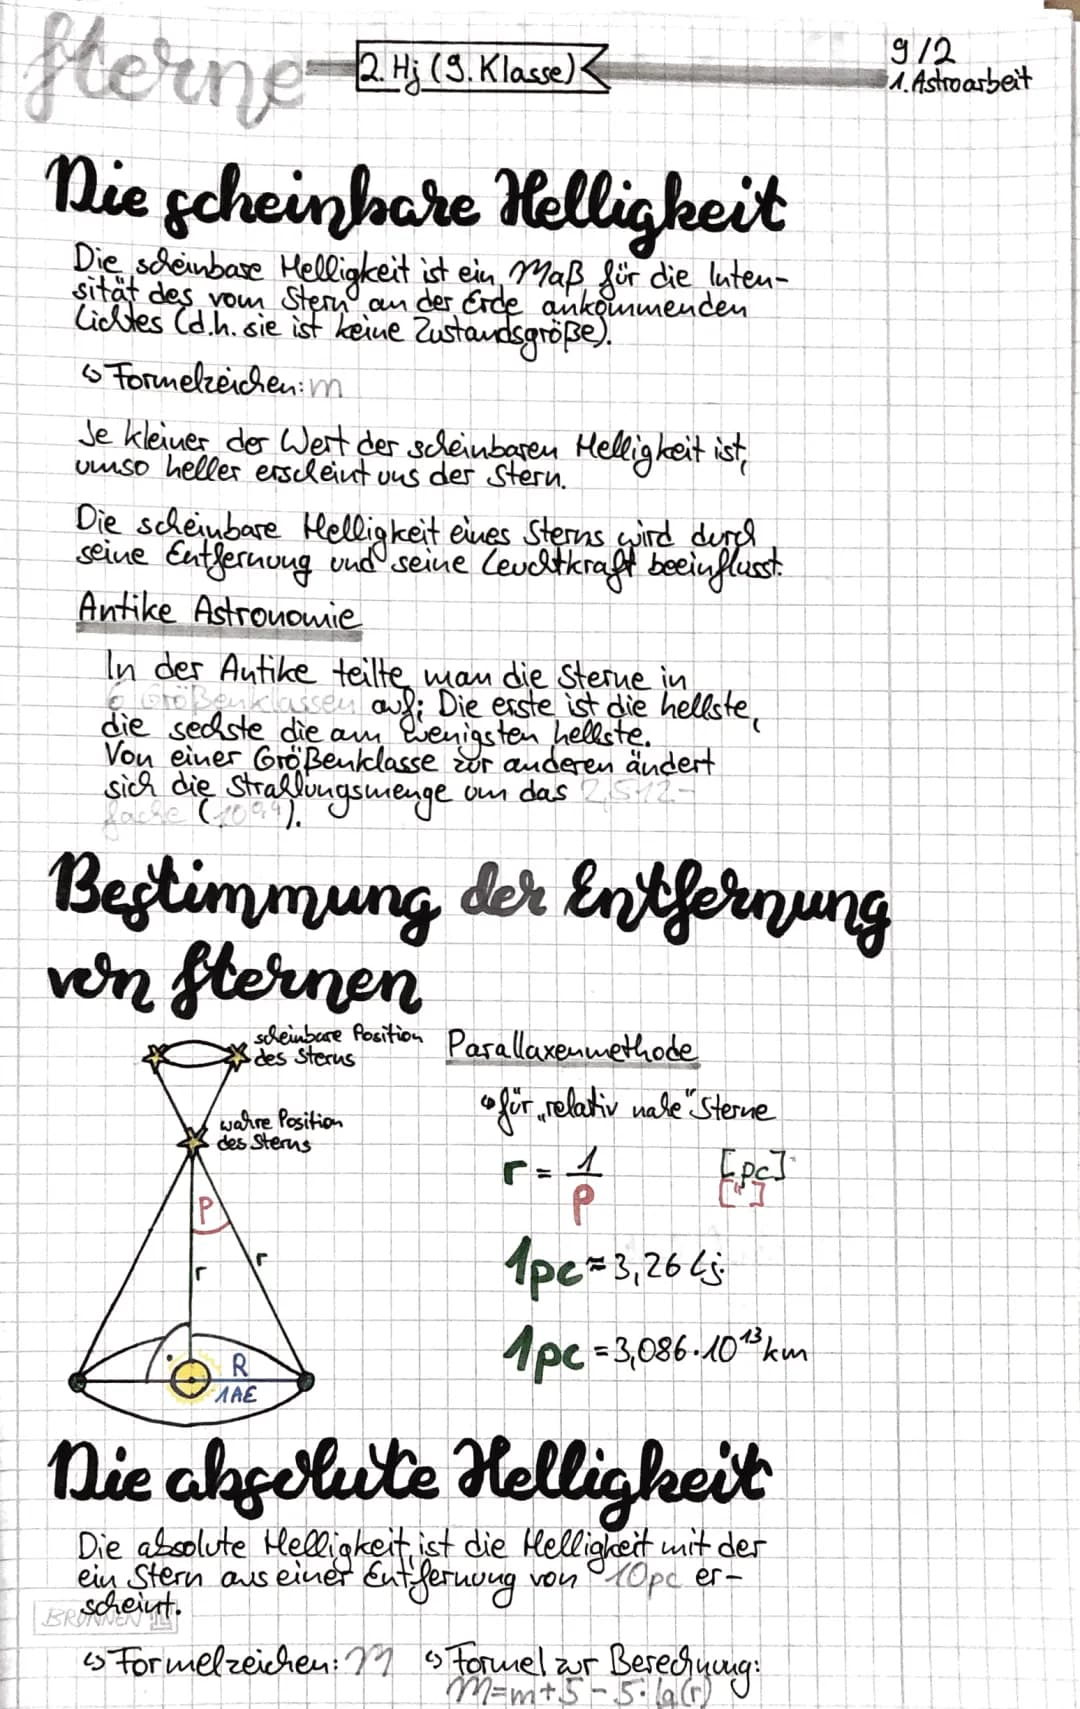 Sterne
2. Hj (9. Klasse)
9/2
1. Astroarbeit
Die scheinbare Helligkeit
Die scheinbare Helligkeit ist ein Maß für die Inten-
sität des vom Stern an der Erde ankommenden
Lichtes (d.h. sie ist keine Zustandsgröße).
↳ Formelzeichen: m
Je kleiner der Wert der scheinbaren Helligkeit ist,
umso heller erscheint uns der Stern.
Die scheinbare Helligkeit eines Sterns wird durch
seine Entfernung und seine Leuchtkraft beeinflusst.
Antike Astronomie
In der Antike teilte man die Sterne in
6 Größenklassen auf: Die erste ist die hellste,
die sechste die am wenigsten hellste.
Von einer Größenklasse zur anderen ändert
sich die Strahlungsmenge um das 2,512-
fache (10^0,4).
Bestimmung der Entfernung
von Sternen
scheinbare Position
des Sterns
wahre Position
des Sterns
P
r
r
R
1AE
Parallaxenmethode
↳ für „relativ nahe" Sterne
r = 1/p [pc] ["]
1pc ≈ 3,26 Lj.
1pc = 3,086·10^13 km
Die absolute Helligkeit
Die absolute Helligkeit ist die Helligkeit mit der
ein Stern aus einer Entfernung von 10pc er-
scheint.
BRUNNEN
↳ Formelzeichen: M ↳ Formel zur Berechnung:
M=m+5-5·lg(r)